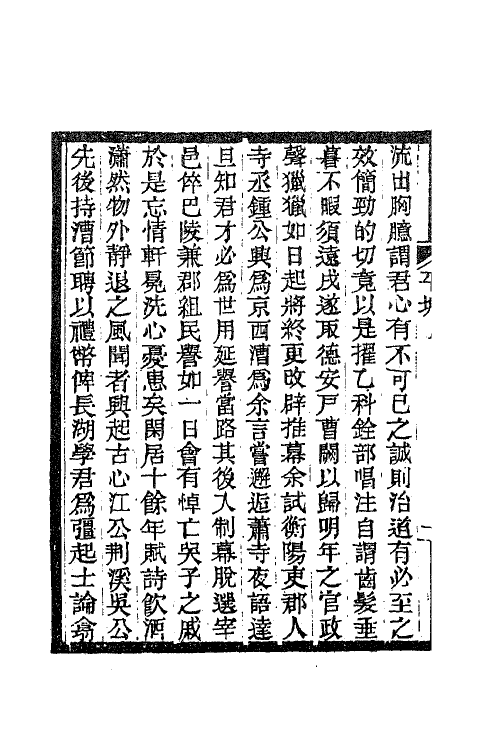 流出胸臆謂君心有不可已之誠則治道有必至之
效簡勁的切竟以是擢乙科銓部唱注自謂齒髮垂
暮不暇須遠戍遂取德安戶曹闕以歸明年之官政
聲獵獵如日起將終更改辟推幕余試衡陽吏郡人
寺丞鍾公興爲京西漕爲余言嘗邂逅蕭寺夜語達
旦知君才必爲世用延譽當路其後入制幕脫選宰
邑倅巴陵兼郡組民譽如一日會有悼亡哭子之戚
於是忘情軒冕洗心憂患矣閑居十餘年賦詩飲酒
瀟然物外靜退之風聞者興起古心江公荆溪吳公
先後持漕節聘以禮幣俾長湖學君爲彊起士論翕